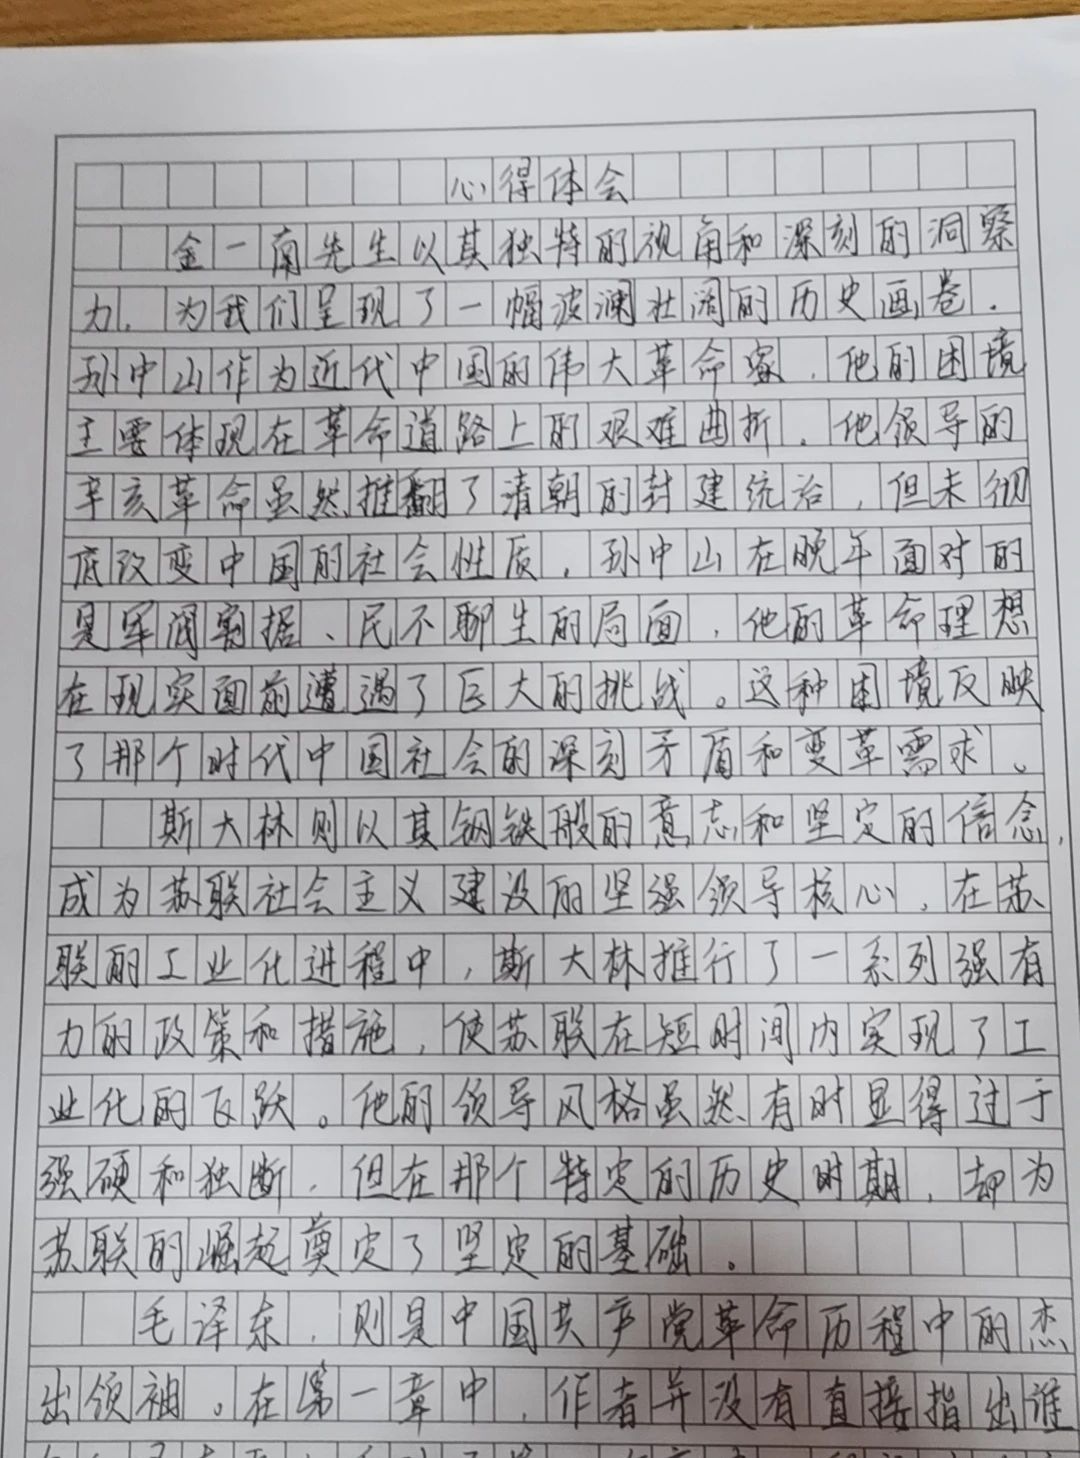 心得体会
金一南先生以其独特的视角和深刻的洞察
力，为我们呈现了一幅波澜壮阔的历史画卷．
孙中山作为近代中国的伟大革命家，他的困境
主要体现在革命道路上的艰难曲折．他领导的
辛亥革命虽然推翻了清朝的封建统治，但未彻
底改变中国的社会性质，孙中山在晚年面对的
是军阀割据、民不聊生的局面，他的革命理想
在现实面前遭遇了巨大的挑战。这种困境反映
了那个时代中国社会的深刻矛盾和变革需求。
斯大林则以其钢铁般的意志和坚定的信念，
成为苏联社会主义建设的坚强领导核心，在苏
联的工业化进程中，斯大林推行了一系列强有
力的政策和措施，使苏联在短时间内实现了工
业化的飞跃。他的领导风格虽然有时显得过于
强硬和独断，但在那个特定的历史时期，却为
苏联的崛起奠定了坚定的基础。
毛泽东，则是中国共产党革命历程中的杰
出领袖。在第一章中，作者并没有直接指出谁